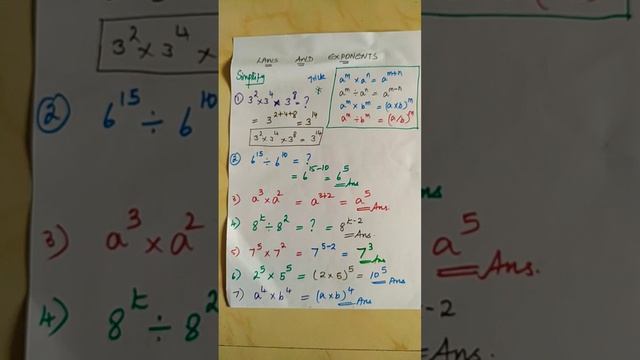 LAWS AND EXPONENTS
Simplify
a^m × a^n = a^{m+n}
a^m ÷ a^n = a^{m-n}
a^m × b^m = (a×b)^m
a^m ÷ b^m = (a/b)^m
① 3^2 × 3^4 × 3^8 = ?
= 3^{2+4+8} = 3^{14}
3^2 × 3^4 × 3^8 = 3^{14}
② 6^{15} ÷ 6^{10} = ?
= 6^{15-10} = 6^5 Ans
3) a^3 × a^2 = a^{3+2} = a^5 Ans.
4) 8^t ÷ 8^2 = ? = 8^{t-2} Ans.
5) 7^5 × 7^2 = 7^{5-2} = 7^3 Ans
6) 2^5 × 5^5 = (2×5)^5 = 10^5 Ans
7) a^4 × b^4 = (a×b)^4 Ans
3^2 × 3^4 ×
② 6^{15} ÷ 6^{10}
3) a^3 × a^2
4) 8^t ÷ 8^2
a^5
Ans.
-2
Ans.